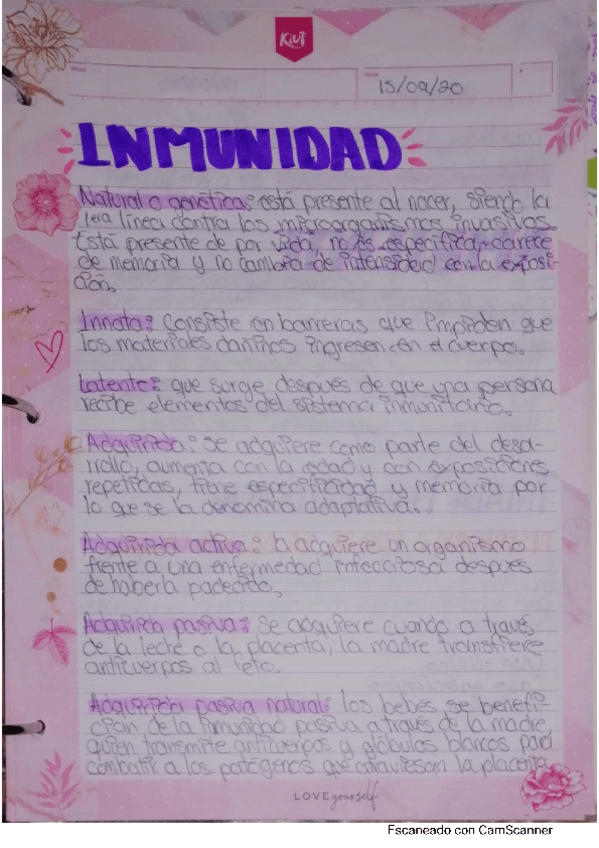 KiUT
FECHA
15/09/20
INMUNIDAD
Natural o genética: está presente al nacer, siendo la
1era línea contra los microorganismos invasivos.
Está presente de por vida, no es específica, carece
de memoria y no cambia de intensidad con la exposi-
ción.
Innata: Consiste en barreras que impiden que
los materiales dañinos ingresen en el cuerpo.
Latente: que surge después de que una persona
recibe elementos del sistema inmunitario.
Adquirida: Se adquiere como parte del desa-
rrollo, aumenta con la edad y con exposiciones
repetidas, tiene especificidad y memoria por
lo que se la denomina adaptativa.
Adquirida activa: la adquiere un organismo
frente a una enfermedad infecciosa después
de haberla padecido.
Adquirida pasiva: Se adquiere cuando a través
de la leche o la placenta, la madre transfiere
anticuerpos al feto.
Adquirida pasiva natural: los bebés se benefi-
cian de la inmunidad pasiva a través de la madre
quien transmite anticuerpos y glóbulos blancos para
combatir a los patógenos que atraviesan la placenta
LOVE yourself
Escaneado con CamScanner